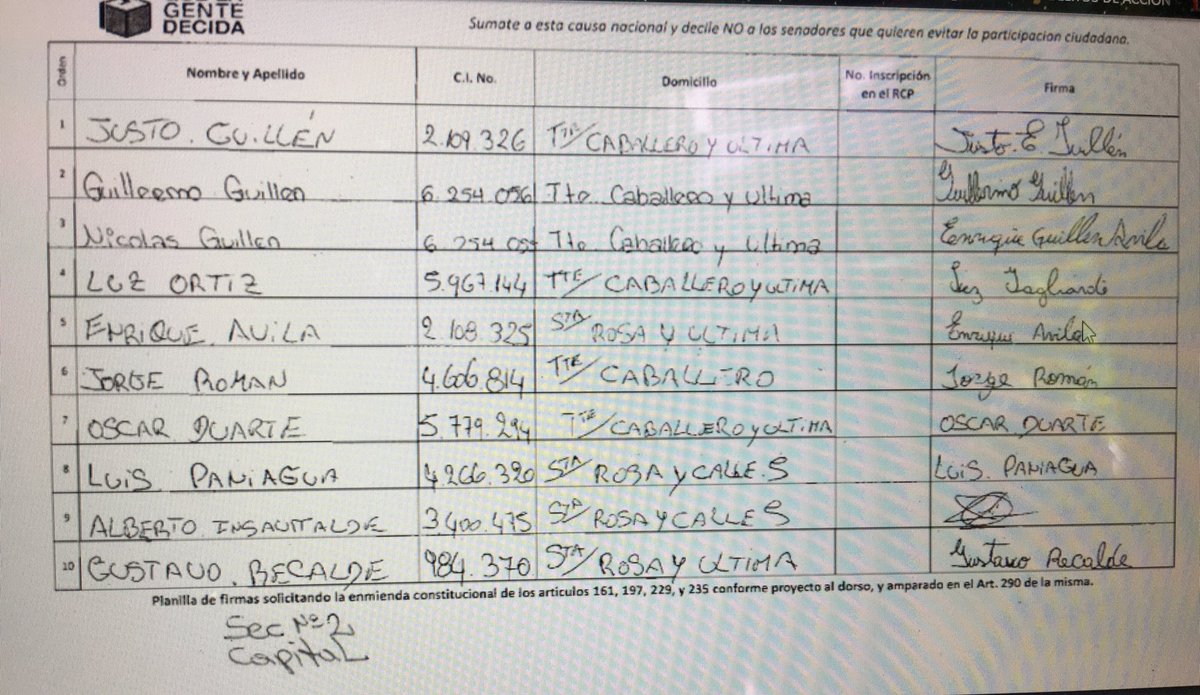 GENTE
DECIDA
Sumate a esta causa nacional y decile NO a los senadores que quieren evitar la participacion ciudadana.
Orden Nombre y Apellido C.I. No. Domicilio No. Inscripción en el RCP Firma
1 JUSTO. GUILLÉN 2.109.326 TTE/CABALLERO Y ULTIMA Justo. E Guillén
2 Guillermo Guillen 6.254.056 Tte. Caballero y Ultima Guillermo Guillén
3 Nicolas Guillen 6.254.05 Tte Caballero y Ultima Enrique Guillen Avila
4 LUZ ORTIZ 5.967.144 TTE/CABALLERO Y ULTIMA Luz
5 ENRIQUE AVILA 2.108.325 STA ROSA Y ULTIMA Enrique Avila
6 JORGE ROMAN 4.606.814 TTE/CABALLERO Jorge Román
7 OSCAR DUARTE 5.779.294 TTE/CABALLERO Y ULTIMA OSCAR DUARTE
8 LUIS PANIAGUA 4.266.320 STA/ROSA Y CALLE S LUIS. PANIAGUA
9 ALBERTO INSAURALDE 3.400.475 STA/ROSA Y CALLE S
10 GUSTAVO. RECALDE 984.370 STA/ROSA Y ULTIMA Gustavo Recalde
Planilla de firmas solicitando la enmienda constitucional de los articulos 161, 197, 229, y 235 conforme proyecto al dorso, y amparado en el Art. 290 de la misma.
Sec Nº 2
Capital